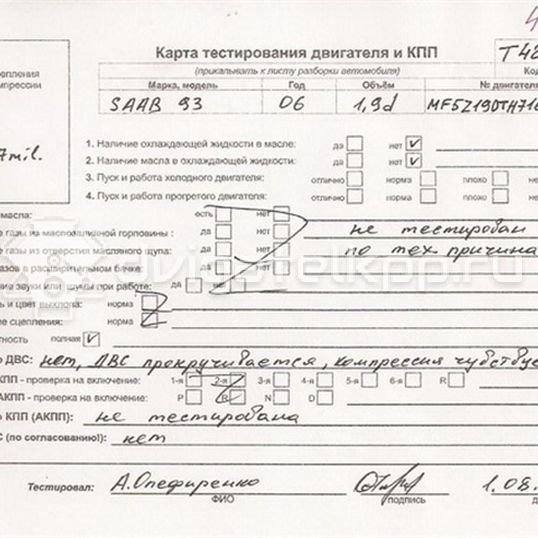 4
Карта тестирования двигателя и КПП
Т42
(прикалывать к листу разборки автомобиля)
Код
Марка, модель Год Объём № двигателя
SAAB 93 06 1,9d MF5Z19DTH716
епления
мпрессии
7mil.
1. Наличие охлаждающей жидкости в масле: да нет
2. Наличие масла в охлаждающей жидкости: да нет
3. Пуск и работа холодного двигателя: отлично норма плохо не
4. Пуск и работа прогретого двигателя: отлично норма плохо не
масла: есть нет
е газы из маслозаливной горловины: да нет не тестирован
е газы из отверстия масляного щупа: да нет по тех. причина
азов в расширительном бачке: да нет
ние звуки или шумы при работе: да нет
ь и цвет выхлопа: норма
ие сцепления: норма
тность полная
о ДВС: нет, ДВС прокручивается, компрессия чувствуе
КПП - проверка на включение: 1-я 2-я 3-я 4-я 5-я 6-я R
АКПП - проверка на включение: P R N D
о КПП (АКПП): не тестирована
С (по согласованию!): нет
Тестировал: А.Опефиренко 1.08.
ФИО подпись д
dvigatelkpp.ru